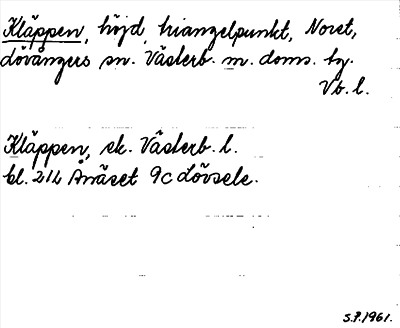 Kläppen, höjd, triangelpunkt, Noret,
Lövångers sn. Västerb. m. doms. hj.
Vb. l.
Kläppen, sk. Västerb. l.
bl. 214 Ånäset 9c Lövsele.
S.P. 1961.